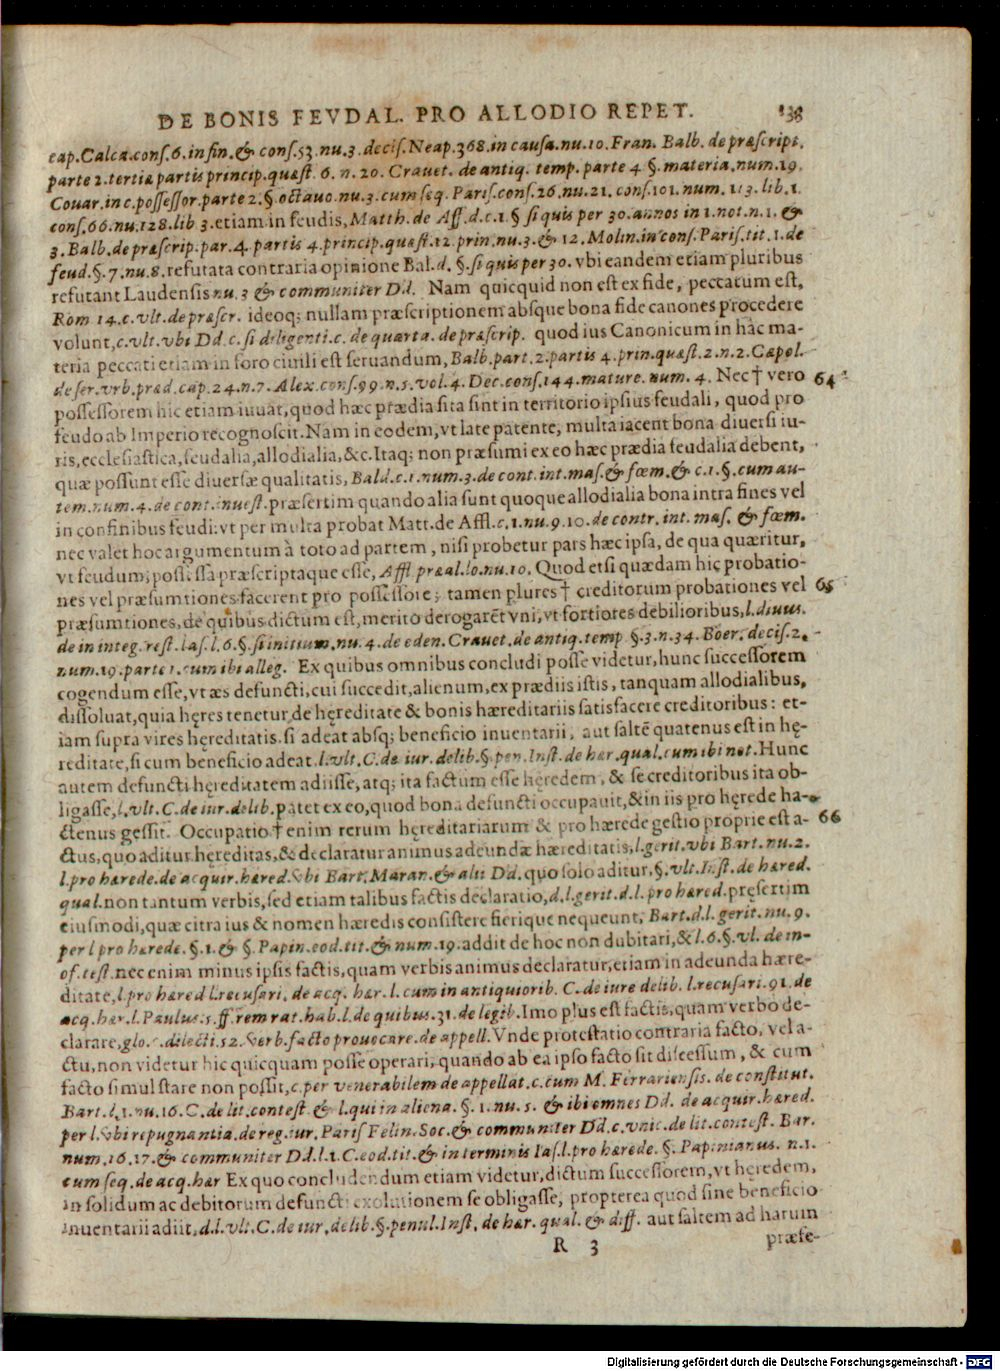 DE BONIS FEVDAL. PRO ALLODIO REPET. 138
cap. Calca. cons. 6. in fin. & cons. 53. nu. 3. decis. Neap. 368. in causa. nu. 10. Fran. Balb. de præscript.
parte 2. tertiæ partis princip. quæst. 6. n. 20. Crauet. de antiq. temp. parte 4 §. materia. num. 19.
Couar. in c. possessor. parte 2. §. octauo. nu. 3. cum seq. Paris. cons. 26. nu. 21. cons. 101. num. 113. lib. 1.
cons. 66. nu. 128. lib 3. etiam in feudis, Matth. de Aff. d. c. 1. § si quis per 30. annos in 1. not. n. 1. &
3. Balb. de præscrip. par. 4. partis 4. princip. quæst. 12. prin. nu. 3. & 12. Molin. in cons. Paris. tit. 1. de
feud. §. 7. nu. 8. refutata contraria opinione Bal. d. §. si quis per 30. vbi eandem etiam pluribus
refutant Laudensis nu. 3 & communiter Dd. Nam quicquid non est ex fide, peccatum est,
Rom 14. c. vlt. de præscr. ideoq; nullam præscriptionem absque bona fide canones procedere
volunt, c. vlt. vbi Dd. c. si diligenti. c. de quarta. de præscrip. quod ius Canonicum in hac ma-
teria peccati etiam in foro ciuili est seruandum, Balb. part. 2. partis 4. prin. quæst. 2. n. 2. Capol.
de ser. vrb. præd. cap. 24. n. 7. Alex. cons. 99. n. 5. vol. 4. Dec. cons. 144. mature. num. 4. Nec † vero 64
possessorem hic etiam iuuat, quod hæc prædia sita sint in territorio ipsius feudali, quod pro
feudo ab Imperio recognoscit. Nam in eodem, vt late patente, multa iacent bona diuersi iu-
ris, ecclesiastica, feudalia, allodialia, &c. Itaq; non præsumi ex eo hæc prædia feudalia debent,
quæ possunt esse diuersæ qualitatis, Bald. c. 1. num. 3. de cont. int. mas. & fœm. & c. 1. §. cum au-
tem. num. 4. de cont. inuest. præsertim quando alia sunt quoque allodialia bona intra fines vel
in confinibus feudi: vt per multa probat Matt. de Affl. c. 1. nu. 9. 10. de contr. int. mas. & fœm.
nec valet hoc argumentum à toto ad partem, nisi probetur pars hæc ipsa, de qua quæritur,
vt feudum, possessa præscriptaque esse, Affl. præal. lo. nu. 10. Quod etsi quædam hic probatio-
nes vel præsumtiones facerent pro possessore; tamen plures † creditorum probationes vel 65
præsumtiones, de quibus dictum est, merito derogarẽt vni, vt fortiores debilioribus, l. diuus.
de in integ. rest. l. as. l. 6. §. si initium. nu. 4. de eden. Crauet. de antiq. temp. §. 3. n. 34. Boer. decis. 2.
num. 19. parte 1. cum ibi alleg. Ex quibus omnibus concludi posse videtur, hunc successorem
cogendum esse, vt æs defuncti, cui succedit, alienum, ex prædiis istis, tanquam allodialibus,
dissoluat, quia hęres tenetur de hęreditate & bonis hæreditariis satisfacere creditoribus: et-
iam supra vires hęreditatis. si adeat absq; beneficio inuentarii, aut saltẽ quatenus est in hę-
reditate, si cum beneficio adeat. l. vlt. C. de iur. delib. §. pen. Inst. de hær. qual. cum ibi not. Hunc
autem defuncti hęreditatem adiisse, atq; ita factum esse hęredem, & se creditoribus ita ob-
ligasse, l. vlt. C. de iur. delib. patet ex eo, quod bona defuncti occupauit, & in iis pro hęrede ha-
ctenus gessit. Occupatio † enim rerum hęreditariarum & pro hærede gestio proprie est a- 66
ctus, quo aditur hęreditas, & declaratur animus adeundæ hæreditatis, l. gerit. vbi Bart. nu. 2.
l. pro hærede. de acquir. hæred. vbi Bart. Maran. & alii Dd. quo solo aditur, §. vlt. Inst. de hæred.
qual. non tantum verbis, sed etiam talibus factis declaratio, d. l. gerit. d. l. pro hæred. pręsertim
eiusmodi, quæ citra ius & nomen hæredis consistere fierique nequeunt, Bart. d. l. gerit. nu. 9.
per l pro hærede. §. 1. & §. Papin. eod. tit. & num. 19. addit de hoc non dubitari, & l. 6. §. vl. de in-
of. test. nec enim minus ipsis factis, quam verbis animus declaratur, etiam in adeunda hære-
ditate, l. pro hæred l. recusari. de acq. hær. l. cum in antiquiorib. C. de iure delib. l. recusari. 91. de
acq. hær. l. Paulus. 5. ff. rem rat. hab. l. de quibus. 31. de legib. Imo plus est factis, quam verbo de-
clarare, glo. c. dilecti. 52. verb. facto prouocare. de appell. Vnde protestatio contraria facto, vel a-
ctu, non videtur hic quicquam posse operari, quando ab ea ipso facto sit discessum, & cum
facto simul stare non possit, c. per venerabilem de appellat. c. cum M. Ferrariensis. de constitut.
Bart. l. 1. nu. 16. C. de lit. contest. & l. qui in aliena. §. 1. nu. 5. & ibi omnes Dd. de acquir. hæred.
per l. vbi repugnantia. de reg. iur. Paris Felin. Soc. & communiter Dd. c. vnic. de lit. contest. Bar.
num. 16. 17. & communiter Dd. l. 1. C. eod. tit. & in terminis Ias. l. pro hærede. §. Papinianus. n. 1.
cum seq. de acq. hær Ex quo concludendum etiam videtur, dictum successorem, vt hęredem,
in solidum ac debitorum defuncti exolutionem se obligasse, propterea quod sine beneficio
inuentarii adiit, d. l. vlt. C. de iur. delib. §. penul. Inst. de hær. qual. & diff. aut saltem ad harum
R 3 præse-
Digitalisierung gefördert durch die Deutsche Forschungsgemeinschaft - DFG